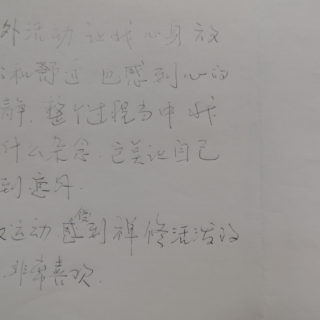 外运动 让我心身放
和舒适 也感到心的
静。整个过程当中 我
什么杂念。这真让自己
到意外。
运动 感觉到禅修活泼的
非常喜欢.